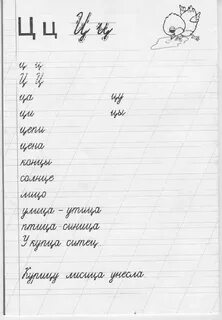 Ц ц Ц ц
ц ц
Ц Ц
ца цу
ци цы
цепи
цена
концы
солнце
лицо
улица - утица
птица синица
У купца ситец.
Курицу лисица унесла.